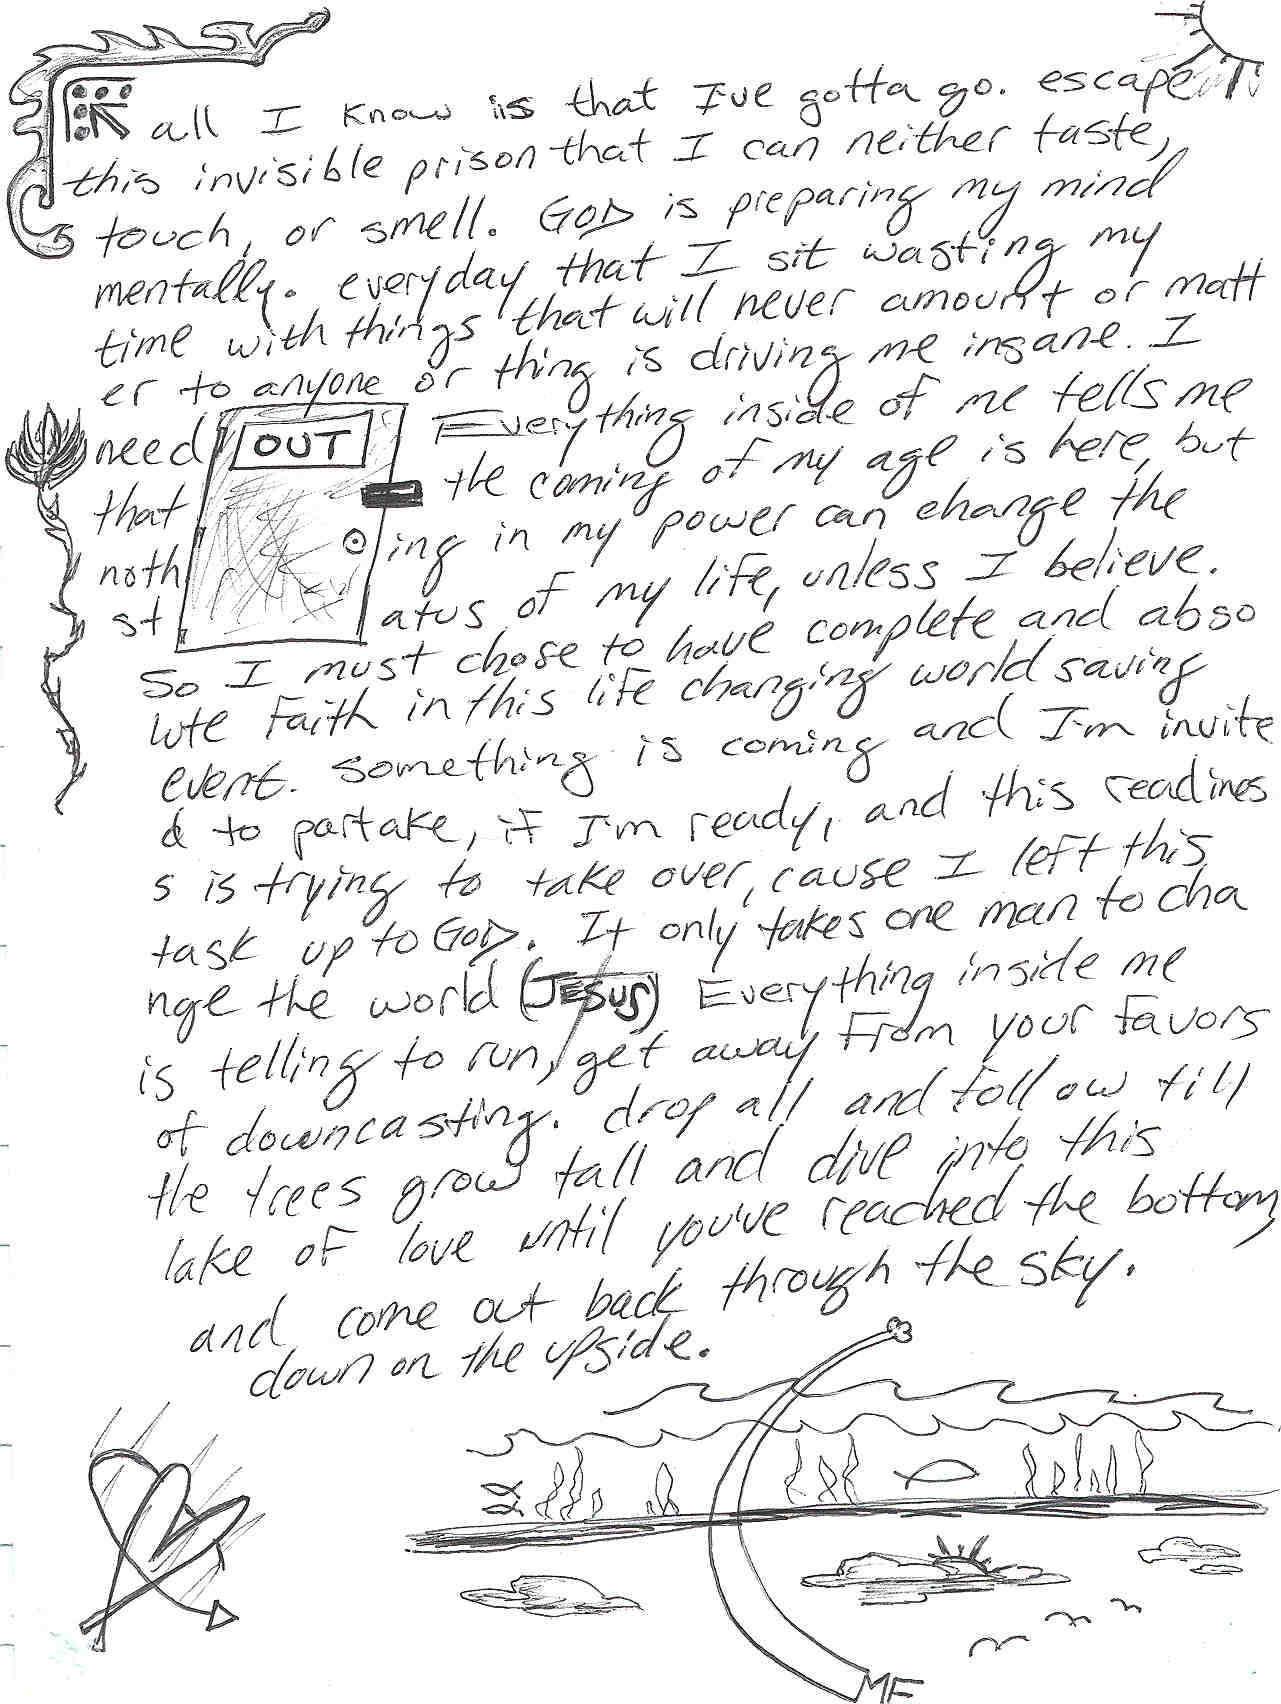 all I know is that I've gotta go. escape
this invisible prison that I can neither taste,
touch, or smell. GOD is preparing my mind
mentally. everyday that I sit wasting my
time with things that will never amount or matt
er to anyone or thing is driving me insane. I
need OUT Everything inside of me tells me
that the coming of my age is here, but
noth ing in my power can change the
st atus of my life, unless I believe.
So I must chose to have complete and abso
lute faith in this life changing world saving
event. something is coming and I'm invite
d to partake, if I'm ready, and this readines
s is trying to take over, cause I left this
task up to GOD. It only takes one man to cha
nge the world (JESUS) Everything inside me
is telling to run, get away from your favors
of downcasting. drop all and follow till
the trees grow tall and dive into this
lake of love until you've reached the bottom,
and come out back through the sky.
down on the upside.
MF